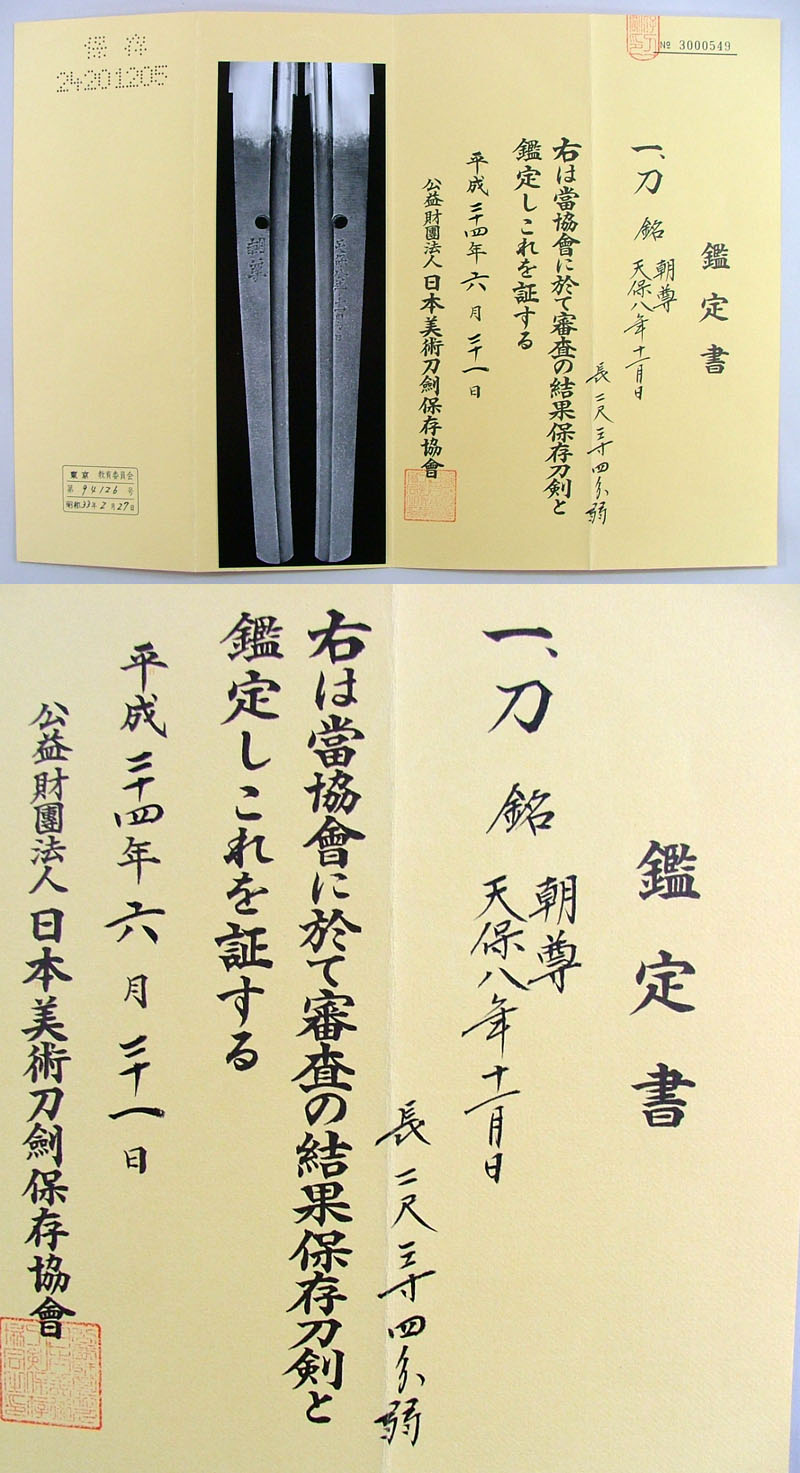 保存
24201205
№ 3000549
鑑定書
一、刀 銘 朝尊
天保八年十一月日
長 二尺三寸四分弱
右は當協會に於て審査の結果保存刀剣と
鑑定しこれを証する
平成二十四年六月二十一日
公益財團法人 日本美術刀劍保存協會
朝尊
東京 教育委員会
第 94126 号
昭和33年2月27日
鑑定書
一、刀 銘 朝尊
天保八年十一月日
長 二尺三寸四分弱
右は當協會に於て審査の結果保存刀剣と
鑑定しこれを証する
平成二十四年六月二十一日
公益財團法人 日本美術刀劍保存協會